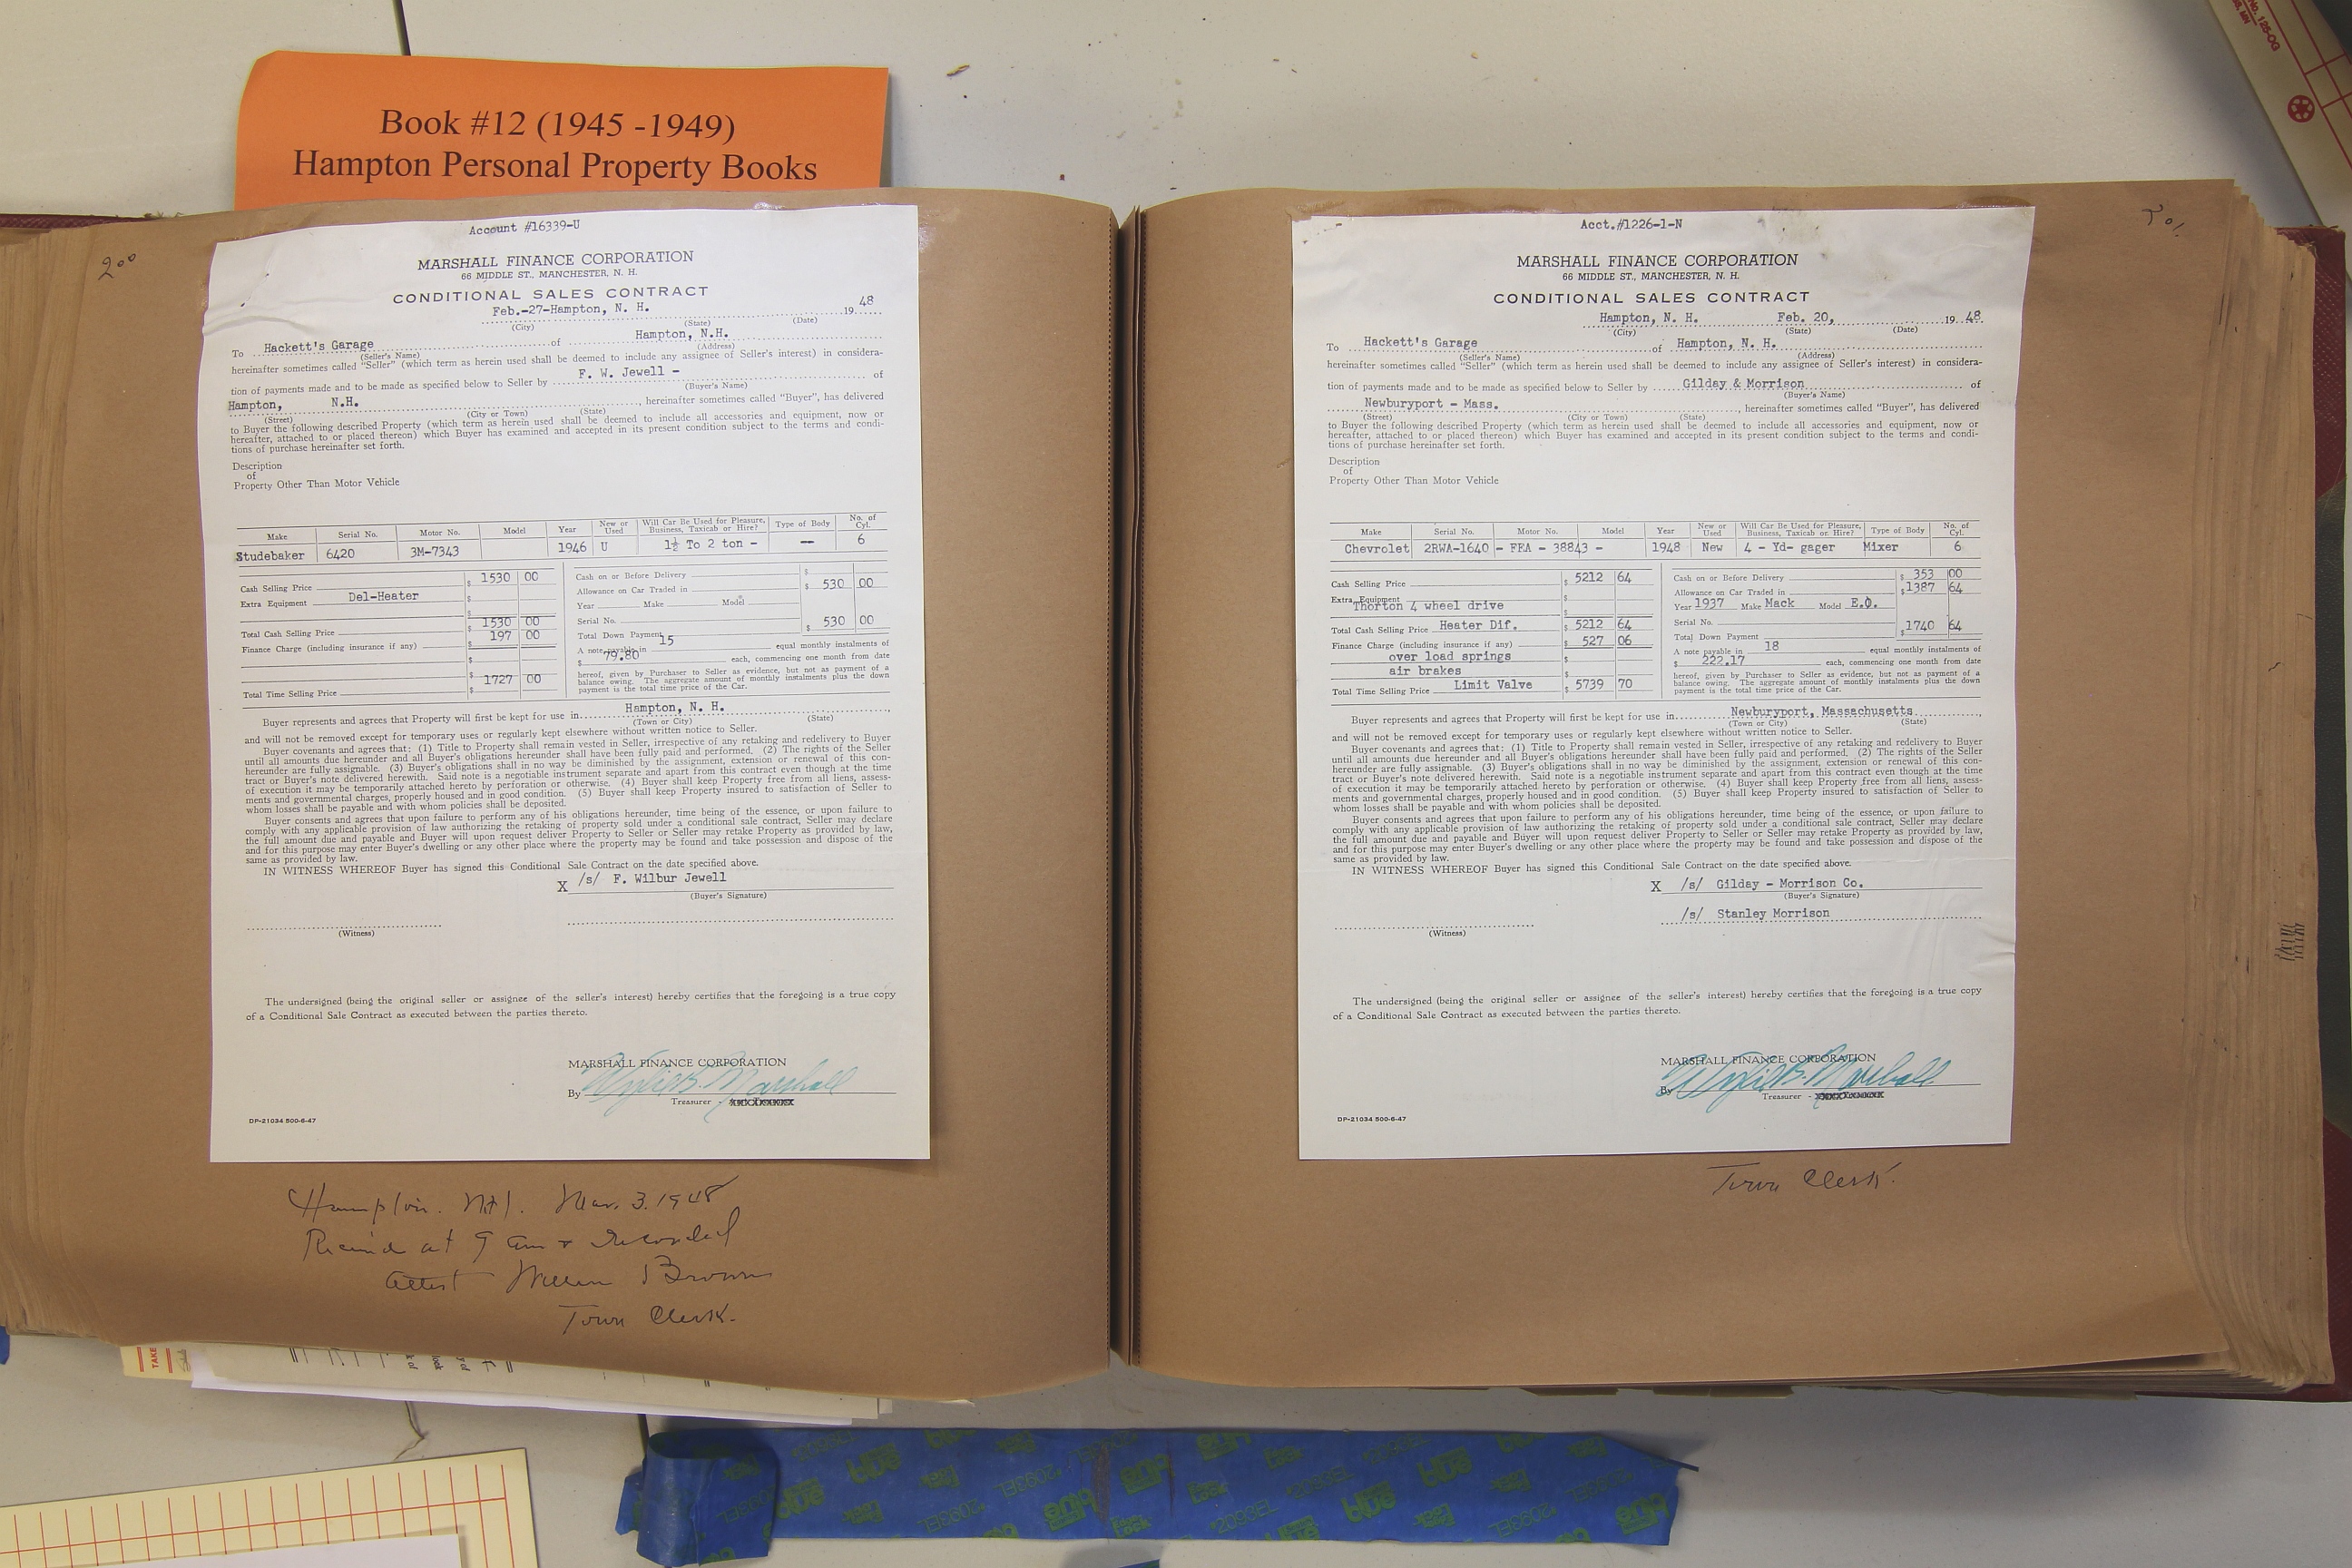 Book #12 (1945 -1949)
Hampton Personal Property Books
2⁰⁰
Account #16339-U
MARSHALL FINANCE CORPORATION
66 MIDDLE ST., MANCHESTER, N. H.
CONDITIONAL SALES CONTRACT
Feb.-27-Hampton, N. H. 19 48
(City) (State) (Date)
To Hackett's Garage of Hampton, N.H.
(Seller's Name) (Address)
hereinafter sometimes called "Seller" (which term as herein used shall be deemed to include any assignee of Seller's interest) in considera-
tion of payments made and to be made as specified below to Seller by F. W. Jewell - of
(Buyer's Name)
Hampton, N.H., hereinafter sometimes called "Buyer", has delivered
(Street) (City or Town) (State)
to Buyer the following described Property (which term as herein used shall be deemed to include all accessories and equipment, now or
hereafter, attached to or placed thereon) which Buyer has examined and accepted in its present condition subject to the terms and condi-
tions of purchase hereinafter set forth.
Description
of
Property Other Than Motor Vehicle
Make Serial No. Motor No. Model Year New or Used Will Car Be Used for Pleasure, Business, Taxicab or Hire? Type of Body No. of Cyl.
Studebaker 6420 3M-7343 1946 U 1½ To 2 ton - -- 6
Cash Selling Price $ 1530 00
Extra Equipment Del-Heater $
Total Cash Selling Price 1530 00
Finance Charge (including insurance if any) $ 197 00
$
Total Time Selling Price $ 1727 00
Cash on or Before Delivery $
Allowance on Car Traded in $ 530 00
Year Make Model
Serial No.
Total Down Payment $ 530 00
A note payable in 15 equal monthly instalments of
$ 79.80 each, commencing one month from date
hereof, given by Purchaser to Seller as evidence, but not as payment of a
balance owing. The aggregate amount of monthly instalments plus the down
payment is the total time price of the Car.
Buyer represents and agrees that Property will first be kept for use in Hampton, N. H.,
(Town or City) (State)
and will not be removed except for temporary uses or regularly kept elsewhere without written notice to Seller.
Buyer covenants and agrees that: (1) Title to Property shall remain vested in Seller, irrespective of any retaking and redelivery to Buyer
until all amounts due hereunder and all Buyer's obligations hereunder shall have been fully paid and performed. (2) The rights of the Seller
hereunder are fully assignable. (3) Buyer's obligations shall in no way be diminished by the assignment, extension or renewal of this con-
tract or Buyer's note delivered herewith. Said note is a negotiable instrument separate and apart from this contract even though at the time
of execution it may be temporarily attached hereto by perforation or otherwise. (4) Buyer shall keep Property free from all liens, assess-
ments and governmental charges, properly housed and in good condition. (5) Buyer shall keep Property insured to satisfaction of Seller to
whom losses shall be payable and with whom policies shall be deposited.
Buyer consents and agrees that upon failure to perform any of his obligations hereunder, time being of the essence, or upon failure to
comply with any applicable provision of law authorizing the retaking of property sold under a conditional sale contract, Seller may declare
the full amount due and payable and Buyer will upon request deliver Property to Seller or Seller may retake Property as provided by law,
and for this purpose may enter Buyer's dwelling or any other place where the property may be found and take possession and dispose of the
same as provided by law.
IN WITNESS WHEREOF Buyer has signed this Conditional Sale Contract on the date specified above.
X /s/ F. Wilbur Jewell
(Buyer's Signature)
(Witness)
The undersigned (being the original seller or assignee of the seller's interest) hereby certifies that the foregoing is a true copy
of a Conditional Sale Contract as executed between the parties thereto.
MARSHALL FINANCE CORPORATION
By B. Marshall
Treasurer -
DP-21034 500-6-47
Hampton. N.H. Mar. 3. 1948
Received at 9 am & recorded
attest William Brown
Town Clerk.
Acct.#1226-1-N
MARSHALL FINANCE CORPORATION
66 MIDDLE ST., MANCHESTER, N. H.
CONDITIONAL SALES CONTRACT
Hampton, N. H. Feb. 20, 19 48
(City) (State) (Date)
To Hackett's Garage of Hampton, N. H.
(Seller's Name) (Address)
hereinafter sometimes called "Seller" (which term as herein used shall be deemed to include any assignee of Seller's interest) in considera-
tion of payments made and to be made as specified below to Seller by Gilday & Morrison of
(Buyer's Name)
Newburyport - Mass., hereinafter sometimes called "Buyer", has delivered
(Street) (City or Town) (State)
to Buyer the following described Property (which term as herein used shall be deemed to include all accessories and equipment, now or
hereafter, attached to or placed thereon) which Buyer has examined and accepted in its present condition subject to the terms and condi-
tions of purchase hereinafter set forth.
Description
of
Property Other Than Motor Vehicle
Make Serial No. Motor No. Model Year New or Used Will Car Be Used for Pleasure, Business, Taxicab or Hire? Type of Body No. of Cyl.
Chevrolet 2RWA-1640 - FEA - 38843 - 1948 New 4 - Yd- gager Mixer 6
Cash Selling Price $ 5212 64
Extra Equipment $
Thorton 4 wheel drive
Total Cash Selling Price Heater Dif. $ 5212 64
Finance Charge (including insurance if any) $ 527 06
over load springs $
air brakes
Total Time Selling Price Limit Valve $ 5739 70
Cash on or Before Delivery $ 353 00
Allowance on Car Traded in $ 1387 64
Year 1937 Make Mack Model E.Q.
Serial No.
Total Down Payment $ 1740 64
A note payable in 18 equal monthly instalments of
$ 222.17 each, commencing one month from date
hereof, given by Purchaser to Seller as evidence, but not as payment of a
balance owing. The aggregate amount of monthly instalments plus the down
payment is the total time price of the Car.
Buyer represents and agrees that Property will first be kept for use in Newburyport, Massachusetts,
(Town or City) (State)
and will not be removed except for temporary uses or regularly kept elsewhere without written notice to Seller.
Buyer covenants and agrees that: (1) Title to Property shall remain vested in Seller, irrespective of any retaking and redelivery to Buyer
until all amounts due hereunder and all Buyer's obligations hereunder shall have been fully paid and performed. (2) The rights of the Seller
hereunder are fully assignable. (3) Buyer's obligations shall in no way be diminished by the assignment, extension or renewal of this con-
tract or Buyer's note delivered herewith. Said note is a negotiable instrument separate and apart from this contract even though at the time
of execution it may be temporarily attached hereto by perforation or otherwise. (4) Buyer shall keep Property free from all liens, assess-
ments and governmental charges, properly housed and in good condition. (5) Buyer shall keep Property insured to satisfaction of Seller to
whom losses shall be payable and with whom policies shall be deposited.
Buyer consents and agrees that upon failure to perform any of his obligations hereunder, time being of the essence, or upon failure to
comply with any applicable provision of law authorizing the retaking of property sold under a conditional sale contract, Seller may declare
the full amount due and payable and Buyer will upon request deliver Property to Seller or Seller may retake Property as provided by law,
and for this purpose may enter Buyer's dwelling or any other place where the property may be found and take possession and dispose of the
same as provided by law.
IN WITNESS WHEREOF Buyer has signed this Conditional Sale Contract on the date specified above.
X /s/ Gilday - Morrison Co.
(Buyer's Signature)
/s/ Stanley Morrison
(Witness)
The undersigned (being the original seller or assignee of the seller's interest) hereby certifies that the foregoing is a true copy
of a Conditional Sale Contract as executed between the parties thereto.
MARSHALL FINANCE CORPORATION
By B. Marshall
Treasurer -
DP-21034 500-6-47
Town Clerk.